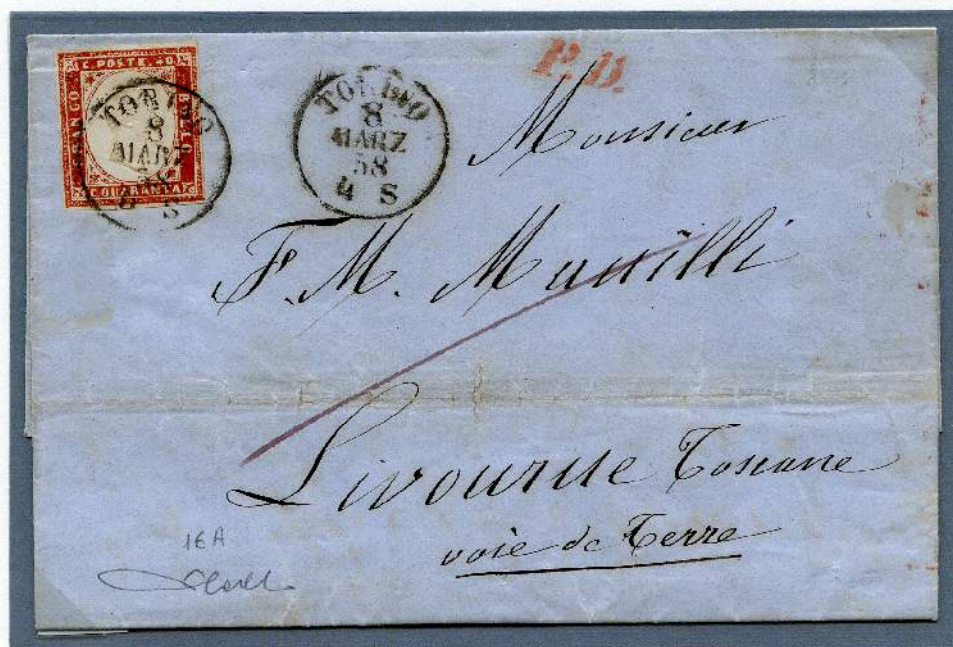 C. POSTE. 40
FRANCO
BOLLO
C. QUARANTA
TORINO
8
MARZ
58
6 S
TORINO
8
MARZ
58
4 S
P.D.
Monsieur
F. M.
Livourne Toscane
voie de Terre
16A